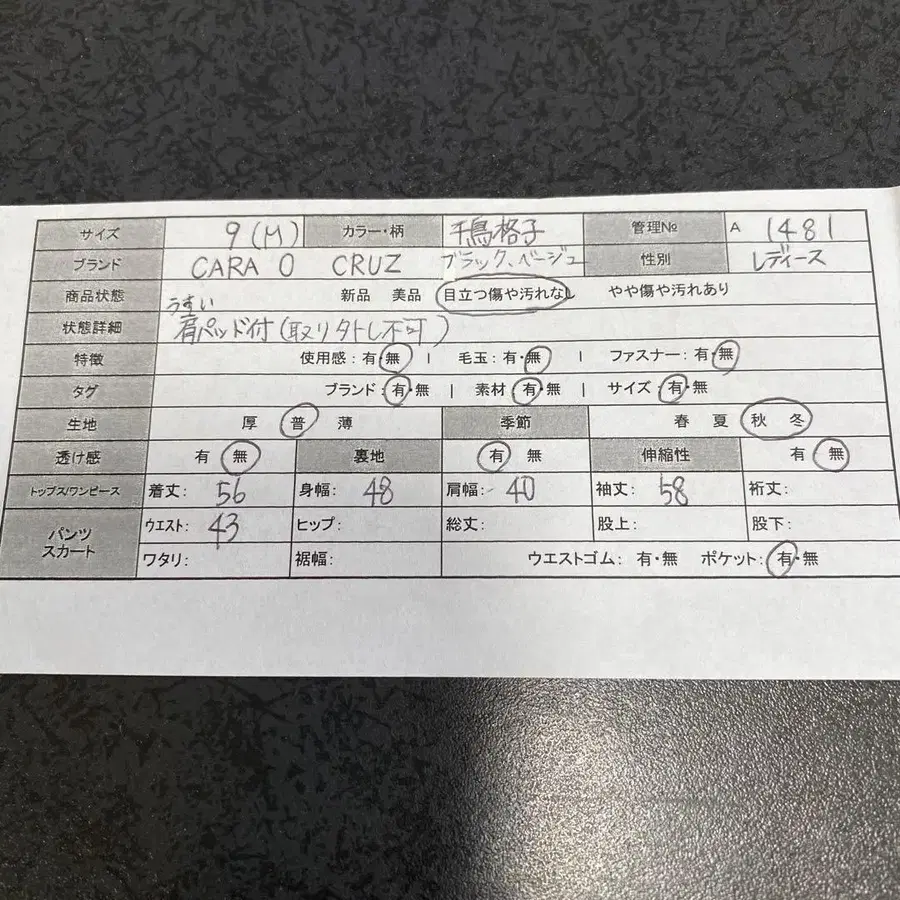 サイズ 9(M) カラー・柄 千鳥格子 管理№ A 1481
ブランド CARA O CRUZ ブラック、ベージュ 性別 レディース
商品状態 新品 美品 目立つ傷や汚れなし やや傷や汚れあり
うすい
状態詳細 肩パッド付(取り外し不可)
特徴 使用感:有・無 | 毛玉:有・無 | ファスナー:有・無
タグ ブランド:有・無 | 素材 有・無 | サイズ 有・無
生地 厚 普 薄 季節 春 夏 秋 冬
透け感 有 無 裏地 有 無 伸縮性 有 無
トップス/ワンピース 着丈:56 身幅:48 肩幅:40 袖丈:58 裄丈:
パンツ スカート ウエスト:43 ヒップ: 総丈: 股上: 股下:
ワタリ: 裾幅: ウエストゴム:有・無 ポケット:有・無